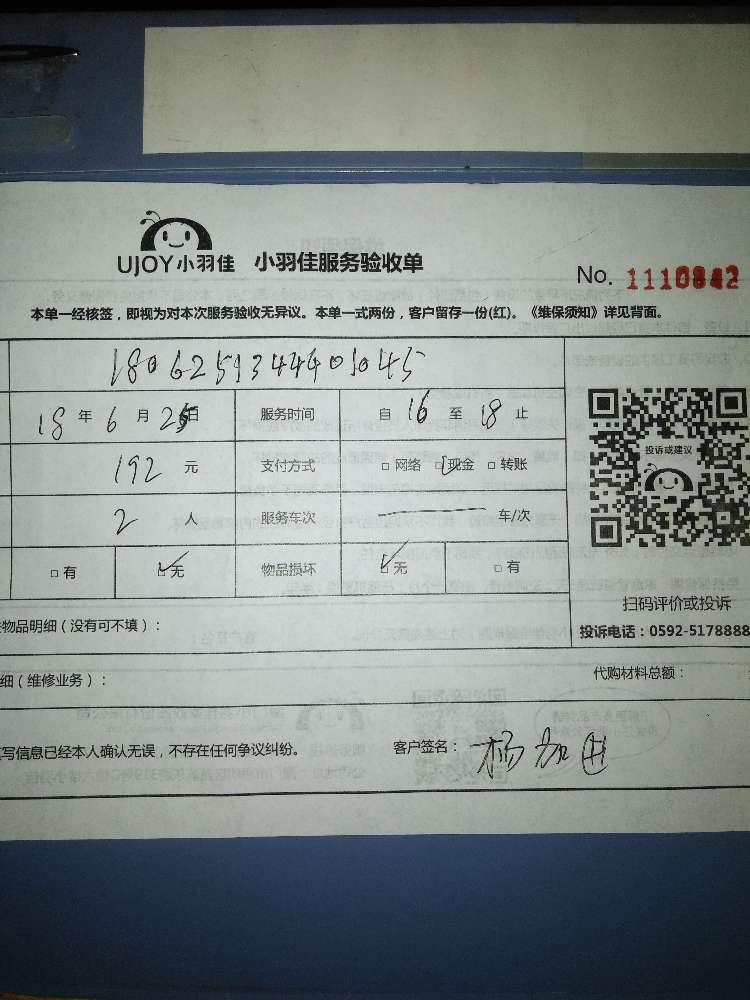 UJOY小羽佳 小羽佳服务验收单
No. 1110842
本单一经核签，即视为对本次服务验收无异议。本单一式两份，客户留存一份(红)。《维保须知》详见背面。
18 年 6 月 25 日 服务时间 自 16 至 18 止
192 元 支付方式 □ 网络 □ 现金 □ 转账
投诉或建议
2 人 服务车次 车/次
□ 有 □ 无 物品损坏 □ 无 □ 有
扫码评价或投诉
物品明细（没有可不填）：
投诉电话：0592-5178888
细（维修业务）：
代购材料总额：
写信息已经本人确认无误，不存在任何争议纠纷。 客户签名：杨加